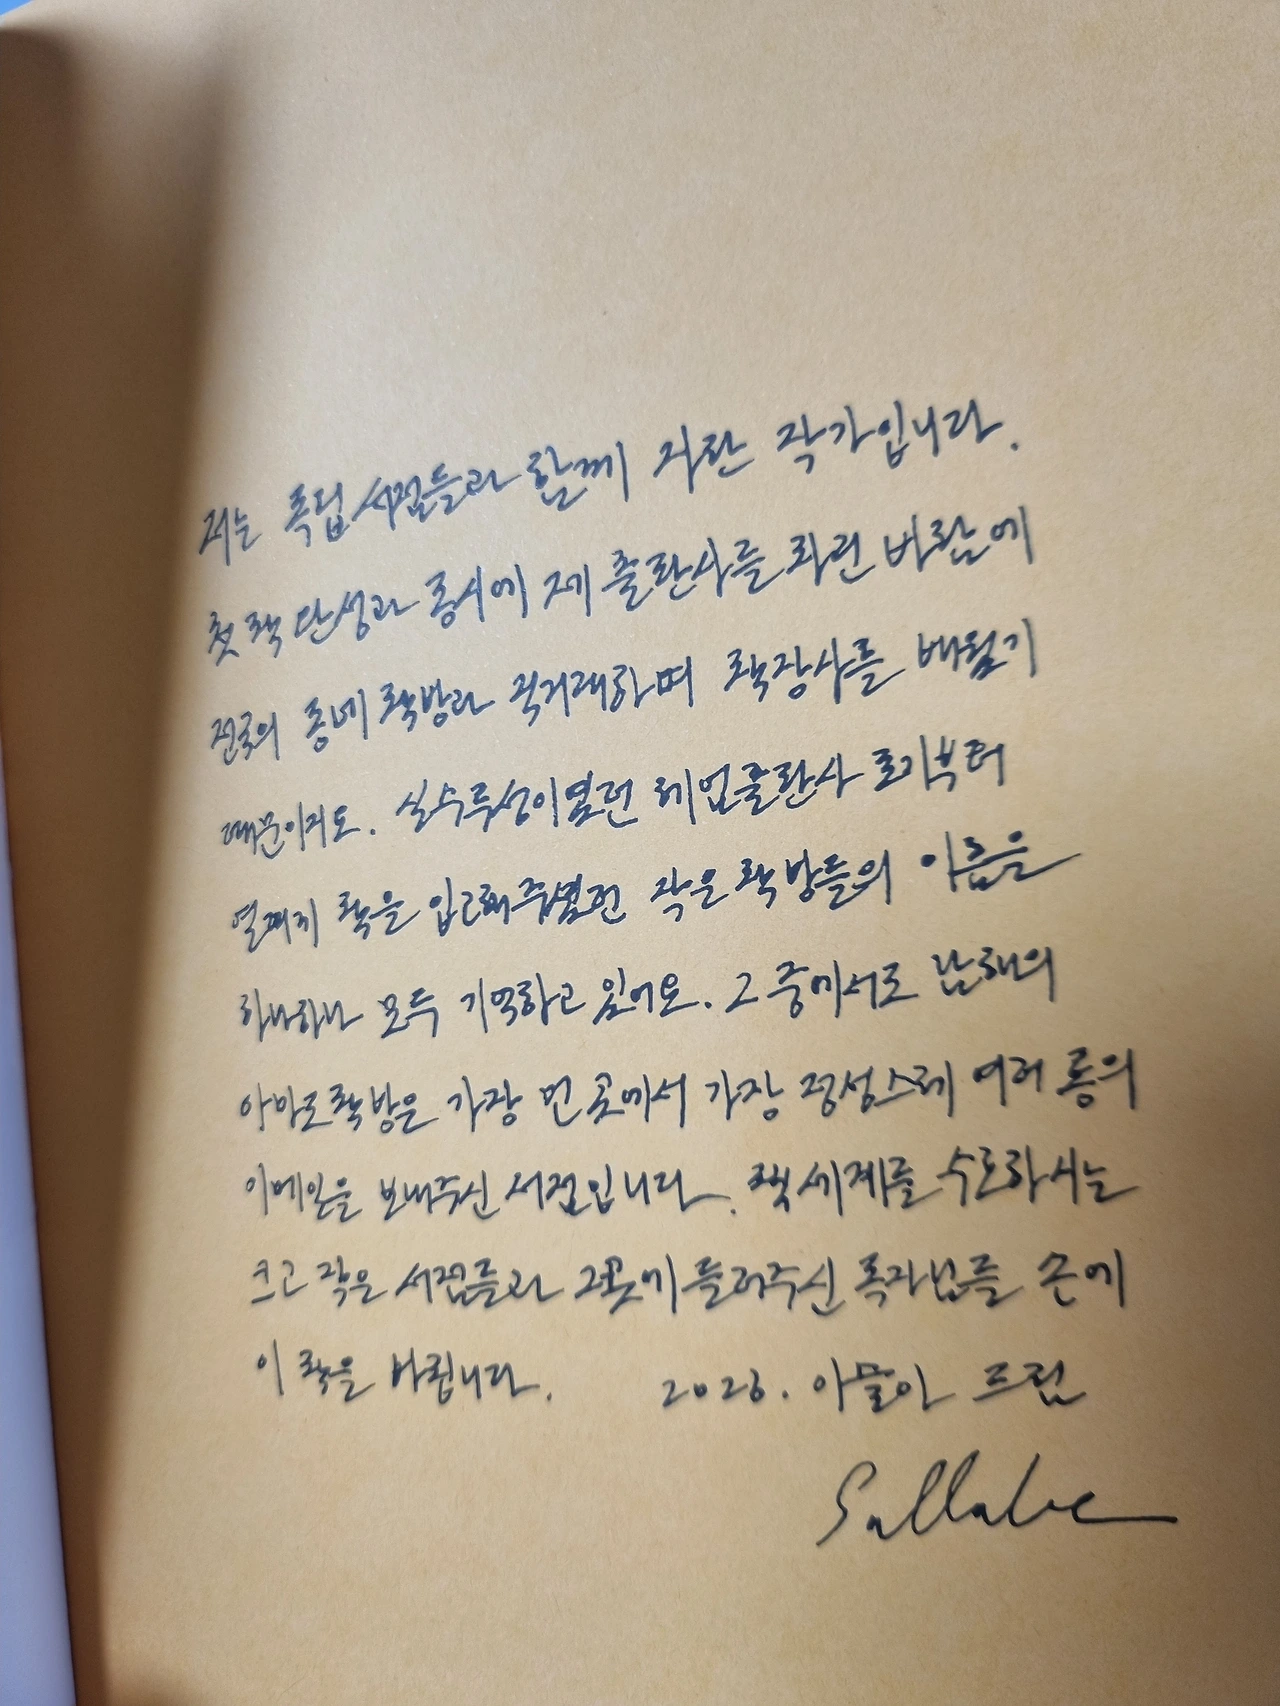 저는 독립 서점들과 함께 자란 작가입니다.
첫 책 탄생과 동시에 제 출판사를 차린 바람에
전국의 동네 책방과 직거래하며 책장사를 배웠기
때문이지요. 실수투성이였던 헤엄출판사 초기부터
열까지 책을 입고해주셨던 작은 책방들의 이름을
하나하나 모두 기억하고 있어요. 그 중에서도 남해의
아마도책방은 가장 먼 곳에서 가장 정성스레 여러 통의
이메일을 보내주신 서점입니다. 책 세계를 수호하시는
크고 작은 서점들과 그곳에 들러주신 독자님들 손에
이 책을 바칩니다. 2026. 드림